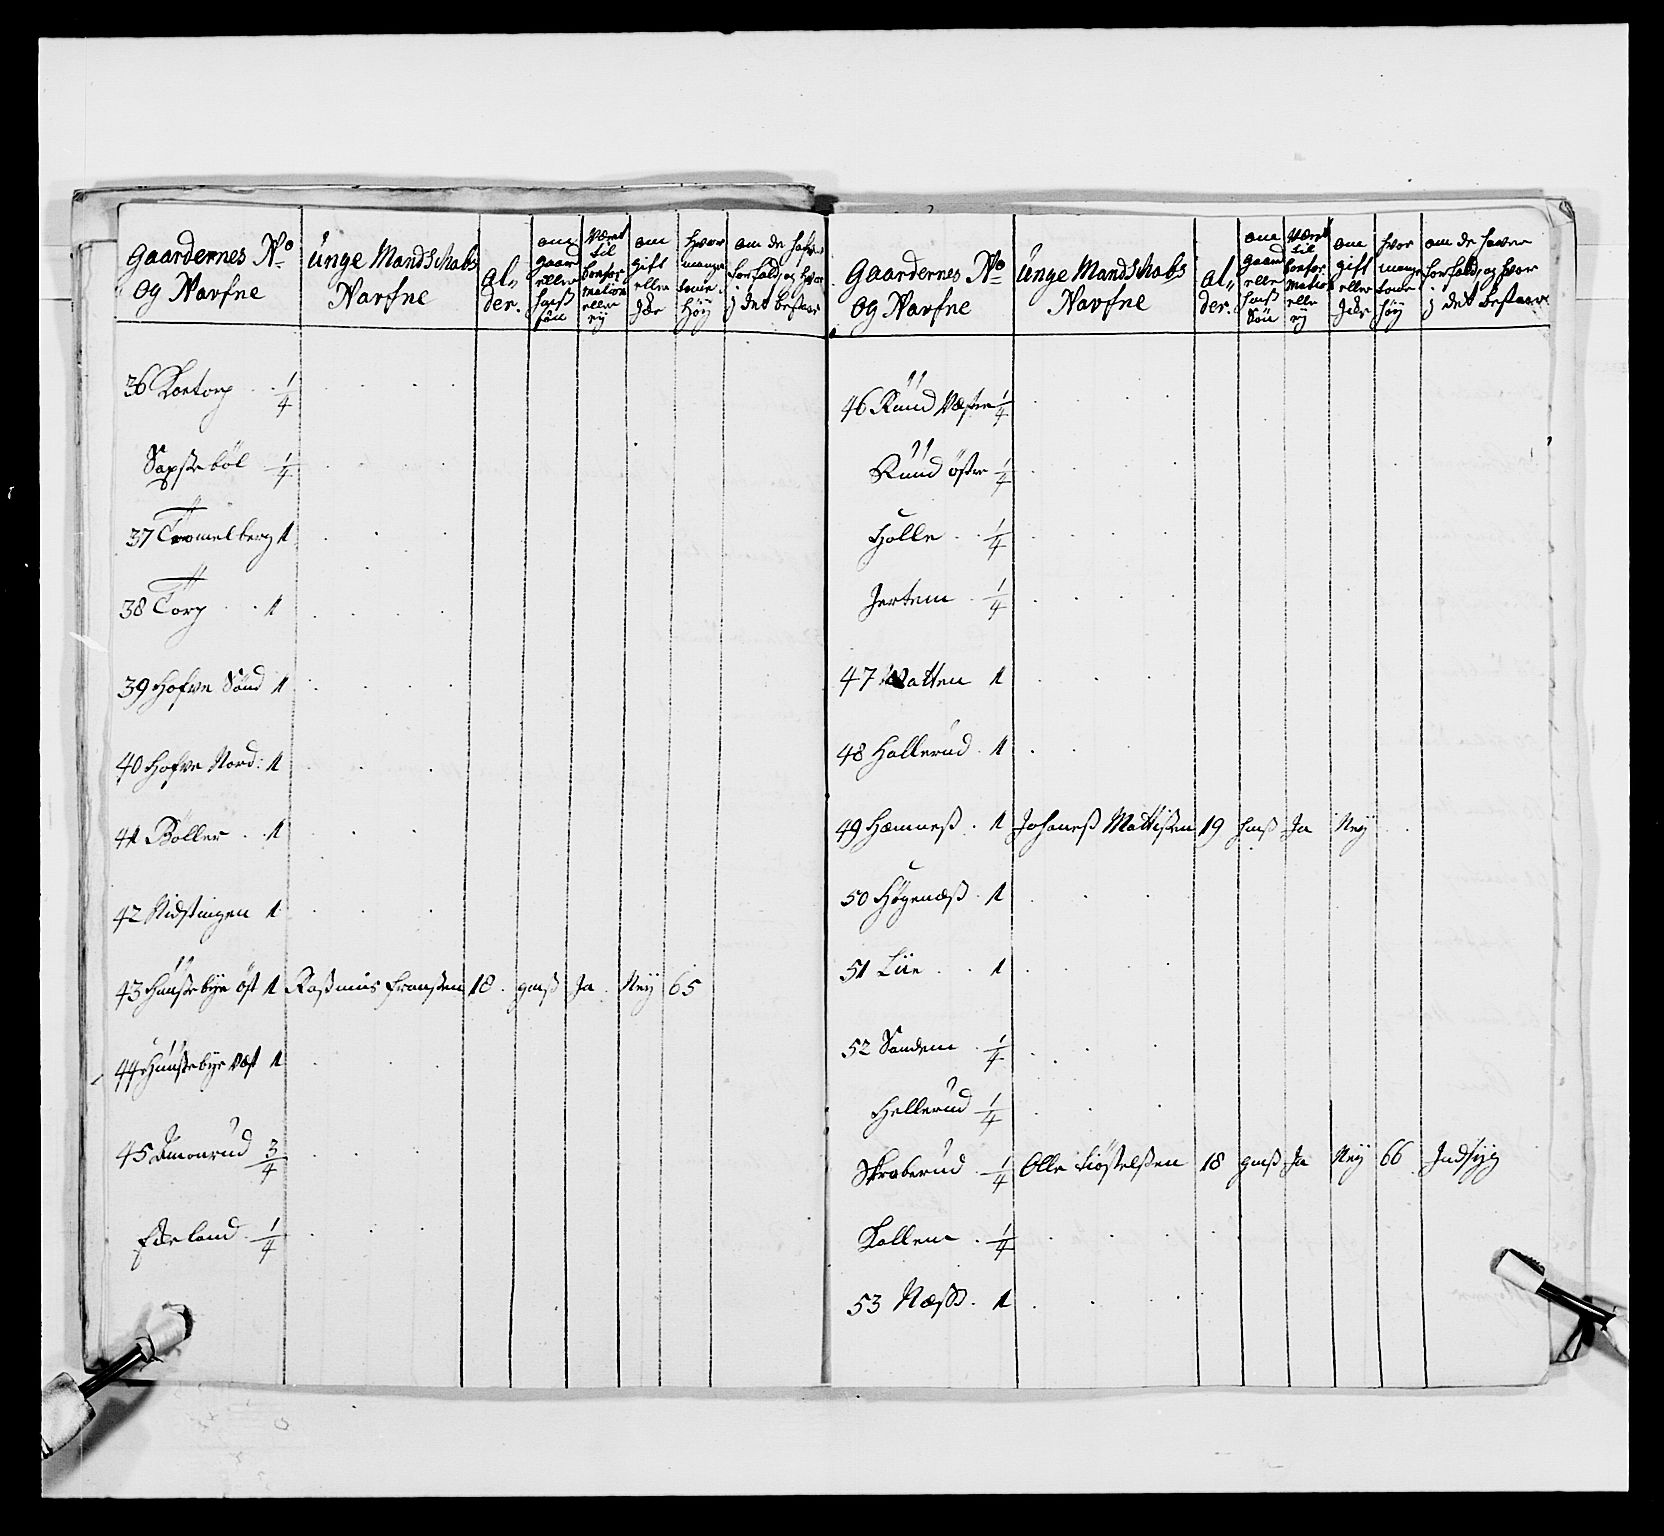 Gaardernes No og Nafne
unge Mandschabs Nafne
al„ der.
om gaard eller huuß sön
Været til Confor„ mation eller eÿ
om gift eller Ej
Hvor mange tome Höÿ
om de hafver forfald, og hvor j det bestaar
36 Kortorp . . 1/4
Sapsebøl 1/4
37 Trømelberg 1
38 Torp . . 1
39 Hofve Sönd 1
40 Hofve Nord: 1
41 Boller . . 1
42 Kidstingen 1
43 Huusebye öst 1 Raßmus Franßen 18 . gmß Ja . Neÿ 65
44 Huusebye Væst 1
45 Simonrud 3/4
Ederland . 1/4
Gaardernes No og Nafne
unge Mandschabs Nafne
al„ der.
om gaard eller huuß Sön
Været til Confor„ mation eller eÿ
om gift eller
hvor mange tome höÿ
om de haver forfald, og hvor j det bestaar
46 Ruud Væster 1/4
Ruud öster 1/4
Holle . . 1/4
Jertem . 1/4
47 Watten 1
48 Hallerud . 1
49 Hæmneß . 1 Johaneß Mattisen 19 huß Ja Neÿ . .
50 Högenæß . 1
51 Lie . . 1
52 Sandem . 1/4
Hellerud 1/4
Skraberud . 1/4 Olle Kiøstelßen 18 gmß Ja Neÿ 66 Indsÿg
Kollem . 1/4
53 Næss . 1